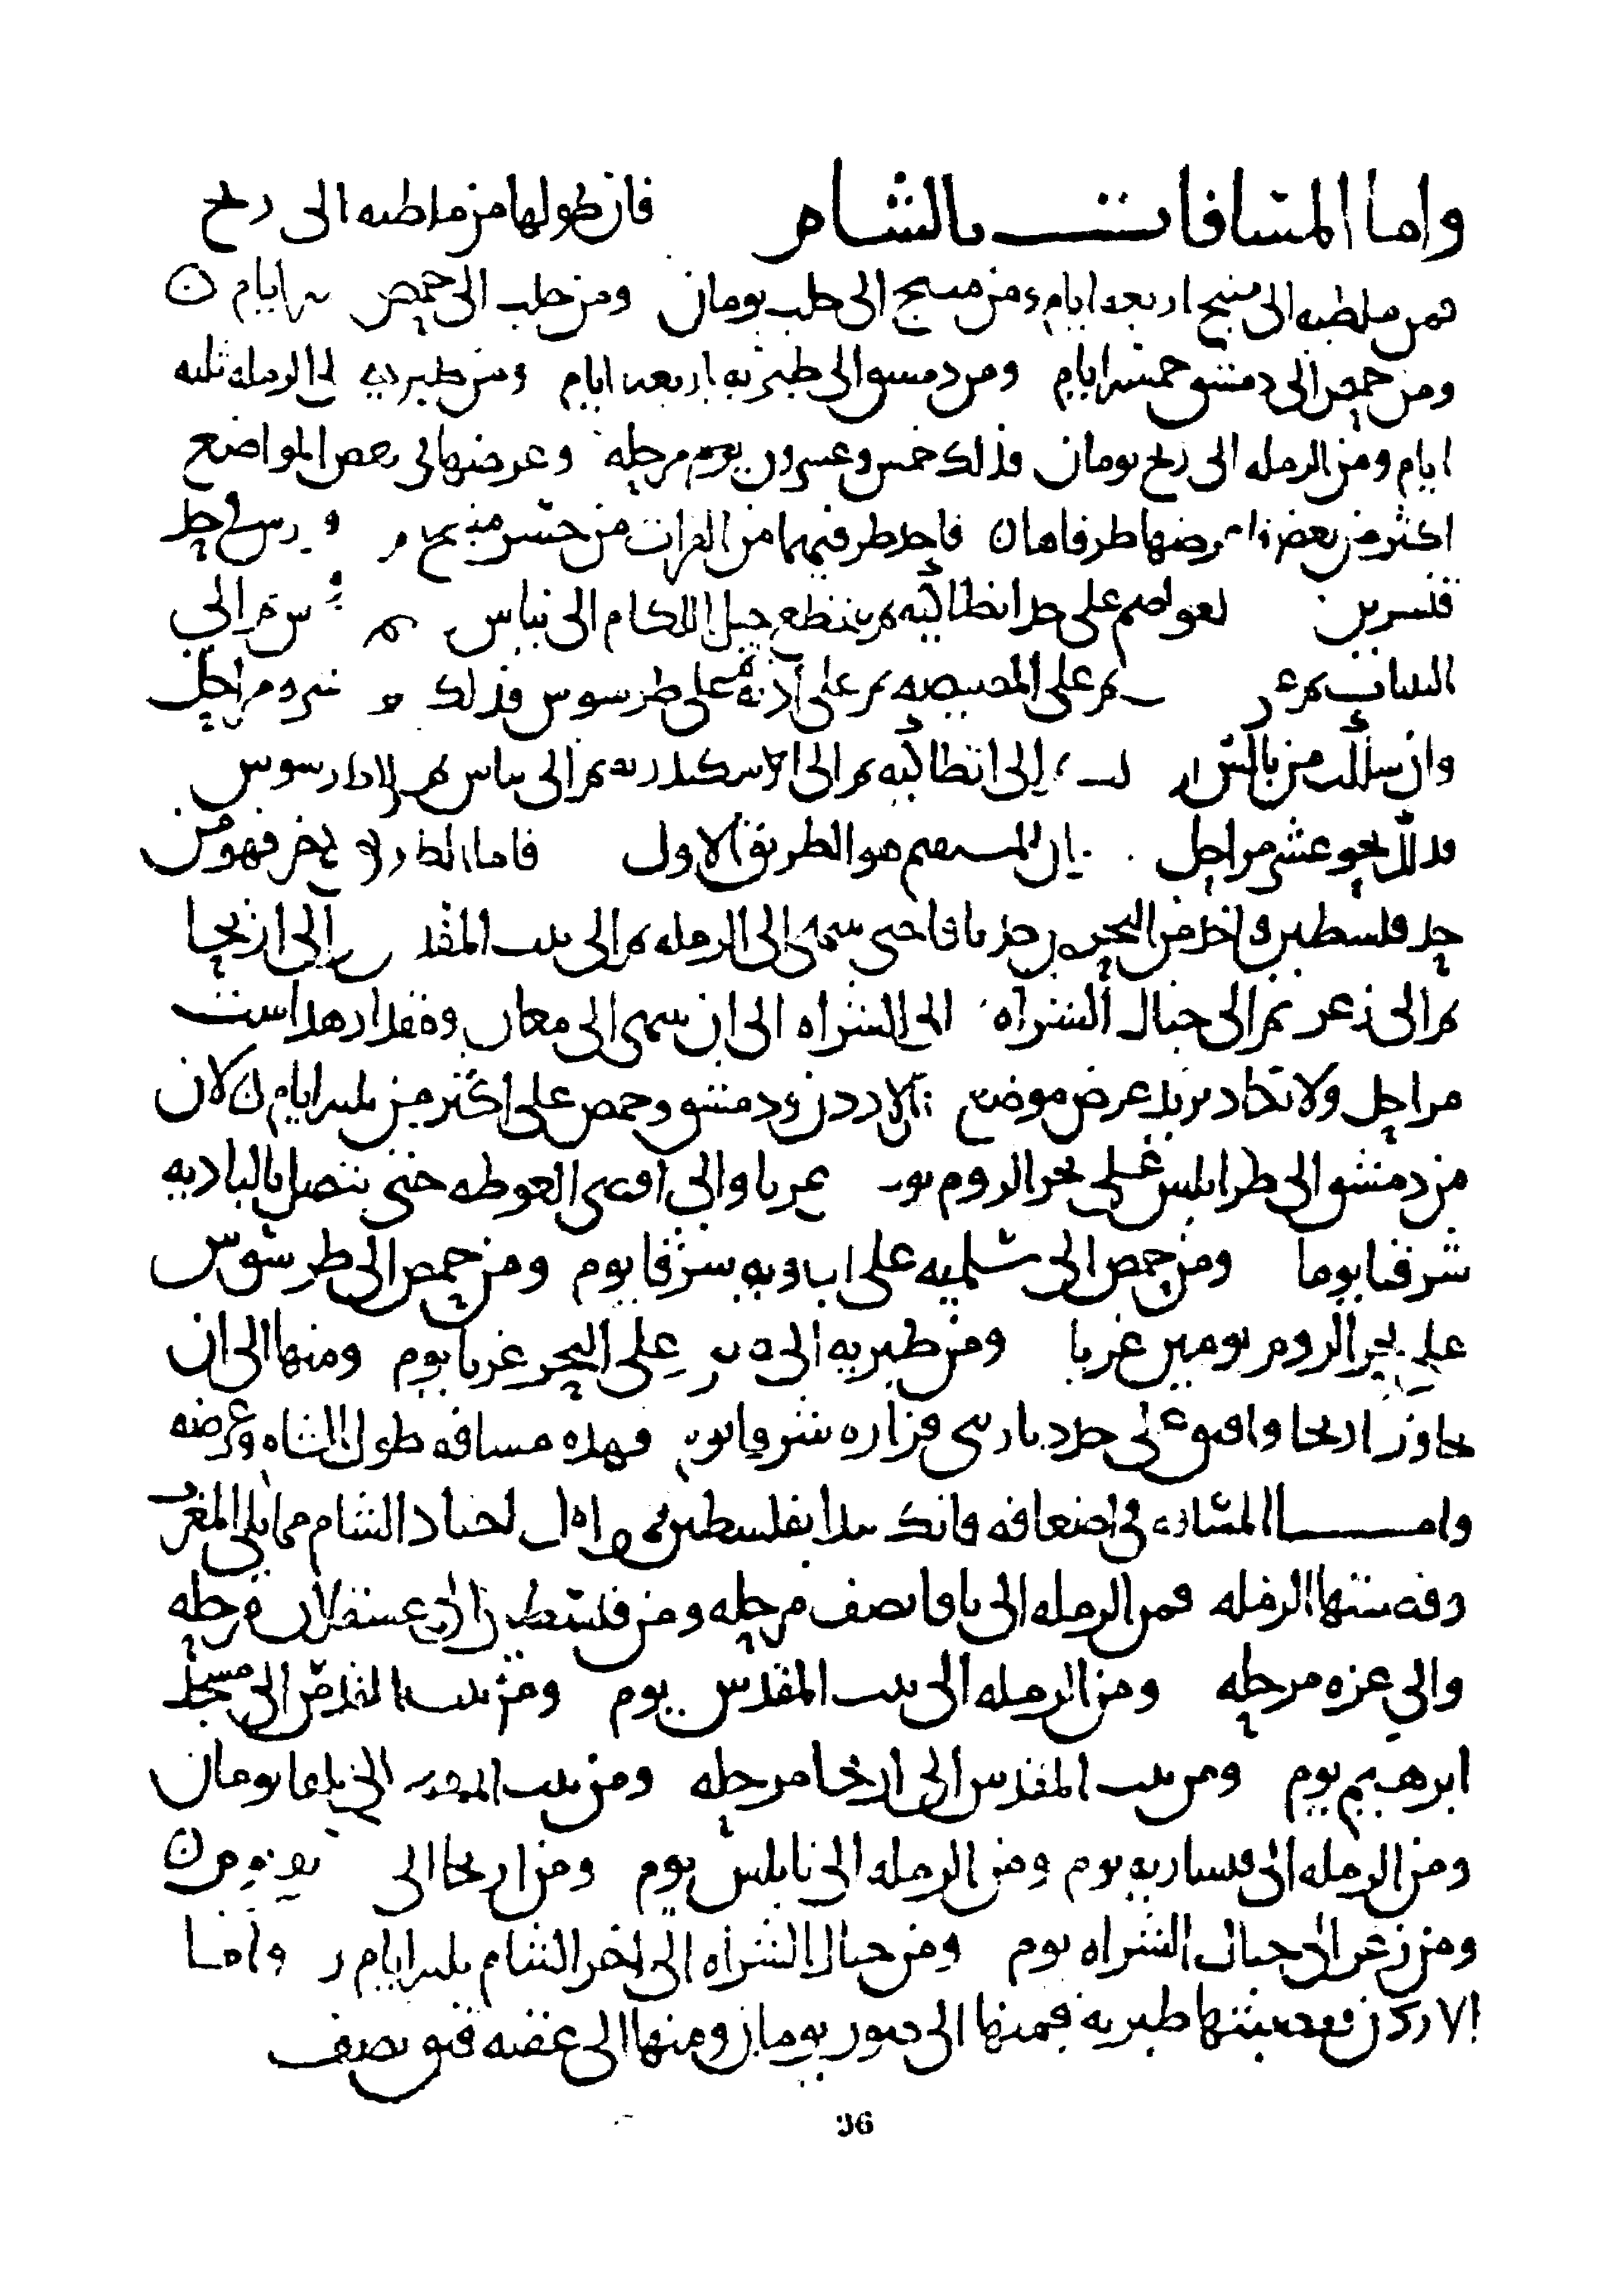 واما المسافات بالشام فان طولها من ملطيه الى رفح
فمن ملطيه الى منبج اربعه ايام ومن منبج الى حلب يومان ومن حلب الى حمص ايام
ومن حمص الى دمشق خمسه ايام ومن دمشق الى طبريه اربعه ايام ومن طبريه الى الرمله ثلثه
ايام ومن الرمله الى رفح يومان فذلك خمس وعشرون يوم مرحله وعرضها في بعض المواضع
اكثر من بعض فا عرضها طرفاها ن فاحد طرفيها من الفرات من جسر منبج حد
قنسرين لعواصم على حد انطاكيه ثم ينقطع جبل اللكام الى بياس الى
التينات ثم على المصيصه ثم على اذنه ثم على طرسوس فذلك عشره مراحل
وان سلكت من بالس الى انطاكيه ثم الى الاسكندريه ثم الى بياس طرسوس
فذلك نحو عشر مراحل المستقيم هو الطريق الاول فاما الطرف الاخر فهو من
حد فلسطين فياخذ من البحر من حد يافا حتى ينتهى الى الرمله ثم الى بيت المقدس الى اريحا
ثم الى زغر ثم الى جبال الشراه الى الشراه الى ان ينتهى الى معان ومقدار هذا ست
مراحل ولا تكاد يزيد عرض موضع الاردن ودمشق وحمص على اكثر من ثلثه ايام لان
من دمشق الى طرابلس على بحر الروم غربا والى اقصى الغوطه حتى يتصل بالباديه
شرقا يوما ومن حمص الى سلميه على الباديه شرقا يوم ومن حمص الى طرسوس
على بحر الروم يومين غربا ومن طبريه الى على البحر غربا يوم ومنها الى ان
يجاوز اريحا وافيق على حد ديار بنى فزاره شرقا يوم فهذه مسافه طول الشام وعرضه
واما المسافه في اضعافه فانك تبدا بفلسطين اول اجناد الشام مما يلى المغرب
وقصبتها الرمله فمن الرمله الى يافا نصف مرحله ومن فلسطين الى عسقلان مرحله
والى غزه مرحله ومن الرمله الى بيت المقدس يوم ومن بيت المقدس الى مسجد
ابرهيم يوم ومن بيت المقدس الى اريحا مرحله ومن بيت المقدس الى بلقا يومان
ومن الرمله الى قيساريه يوم ومن الرمله الى نابلس يوم ومن اريحا الى
ومن زغر الى جبال الشراه يوم ومن جبال الشراه الى اخر الشام ثلثه ايام واما
الاردن فقصبتها طبريه فمنها الى صور يومان ومنها الى عقبه فيق نصف
96